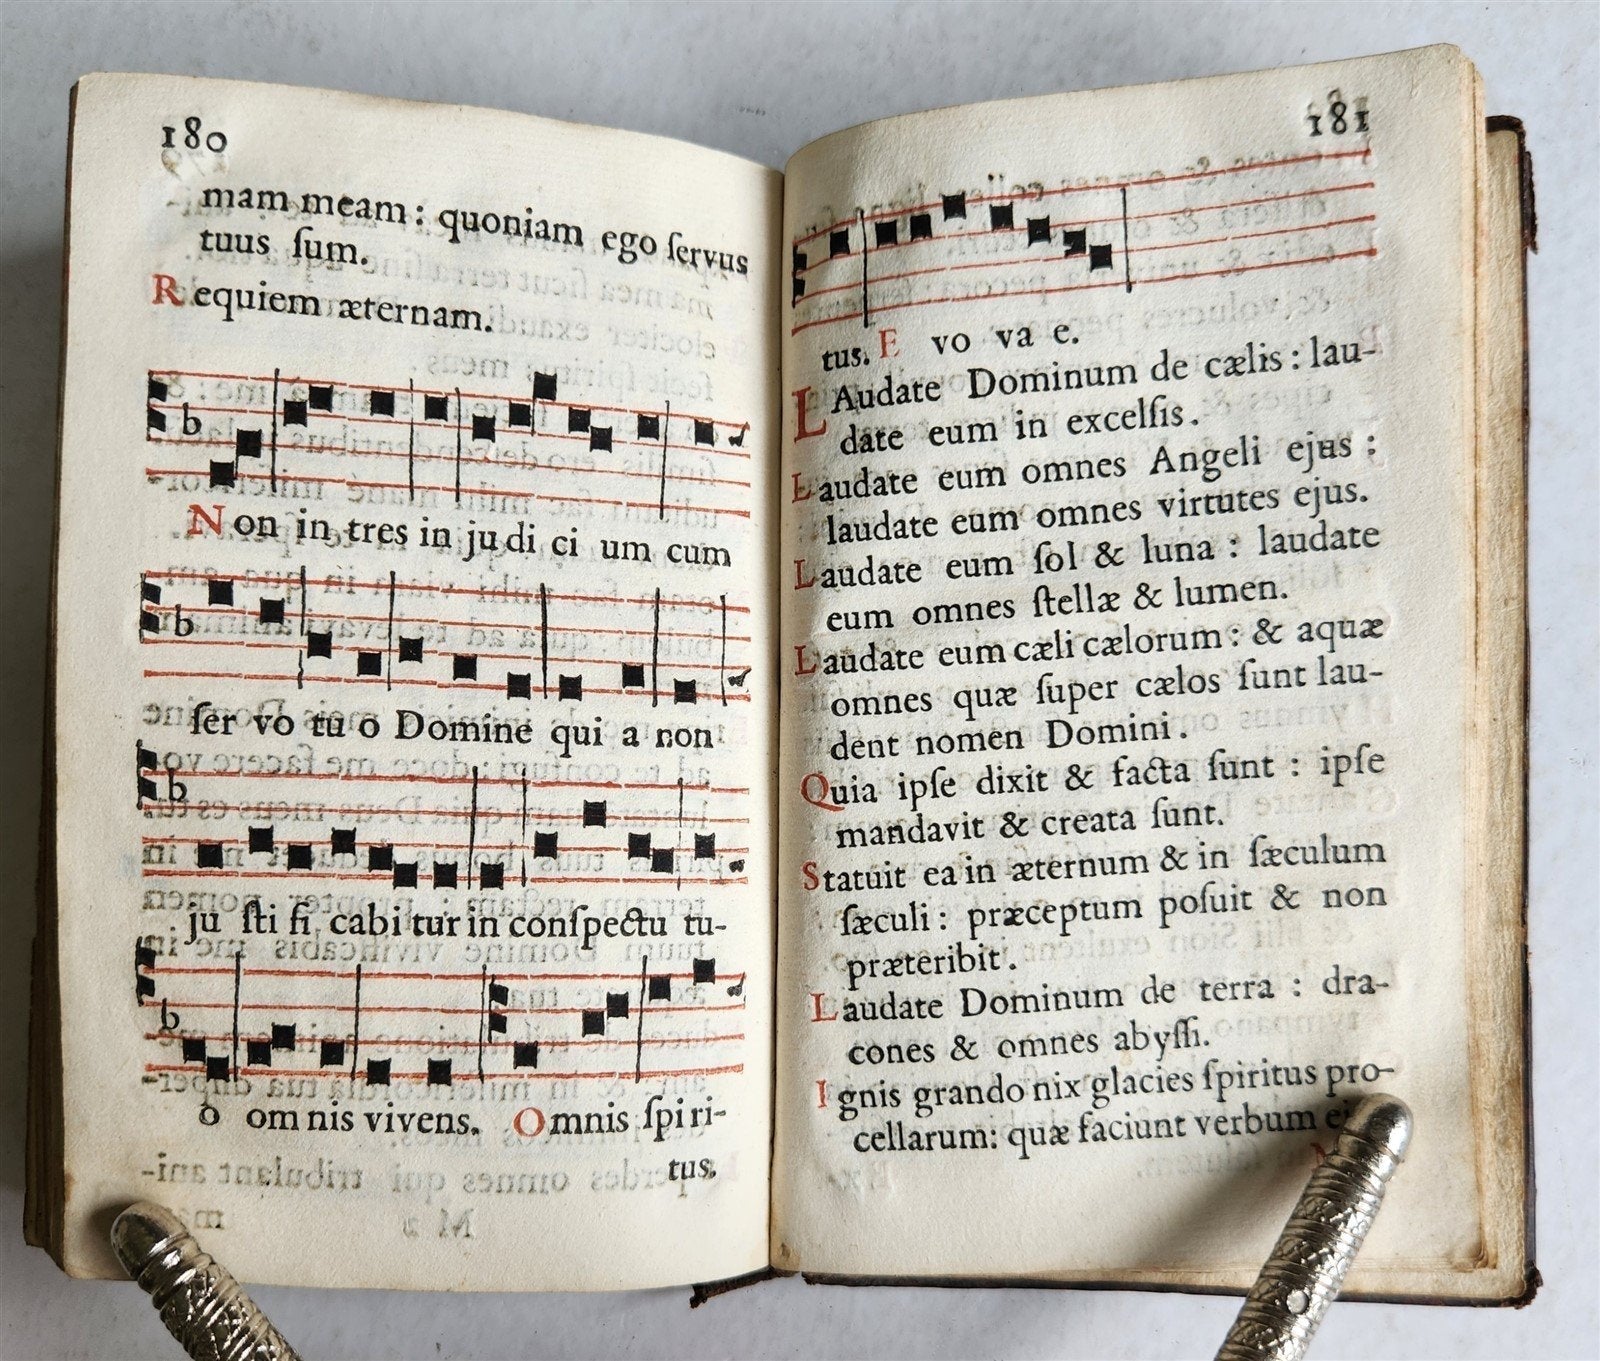 180
mam meam : quoniam ego ſervus
tuus ſum.
Requiem æternam.
b
Non in tres in ju di ci um cum
b
ſer vo tu o Domine qui a non
b
ju ſti fi cabi tur in conſpectu tu-
b
o om nis vivens. Omnis ſpi ri-
tus.
181
tus. E vo va e.
LAudate Dominum de cælis : lau-
date eum in excelſis.
Laudate eum omnes Angeli ejus :
laudate eum omnes virtutes ejus.
Laudate eum ſol & luna : laudate
eum omnes ſtellæ & lumen.
Laudate eum cæli cælorum : & aquæ
omnes quæ ſuper cælos ſunt lau-
dent nomen Domini.
Quia ipſe dixit & facta ſunt : ipſe
mandavit & creata ſunt.
Statuit ea in æternum & in ſæculum
ſæculi : præceptum poſuit & non
præteribit.
Laudate Dominum de terra : dra-
cones & omnes abyſſi.
Ignis grando nix glacies ſpiritus pro-
cellarum: quæ faciunt verbum